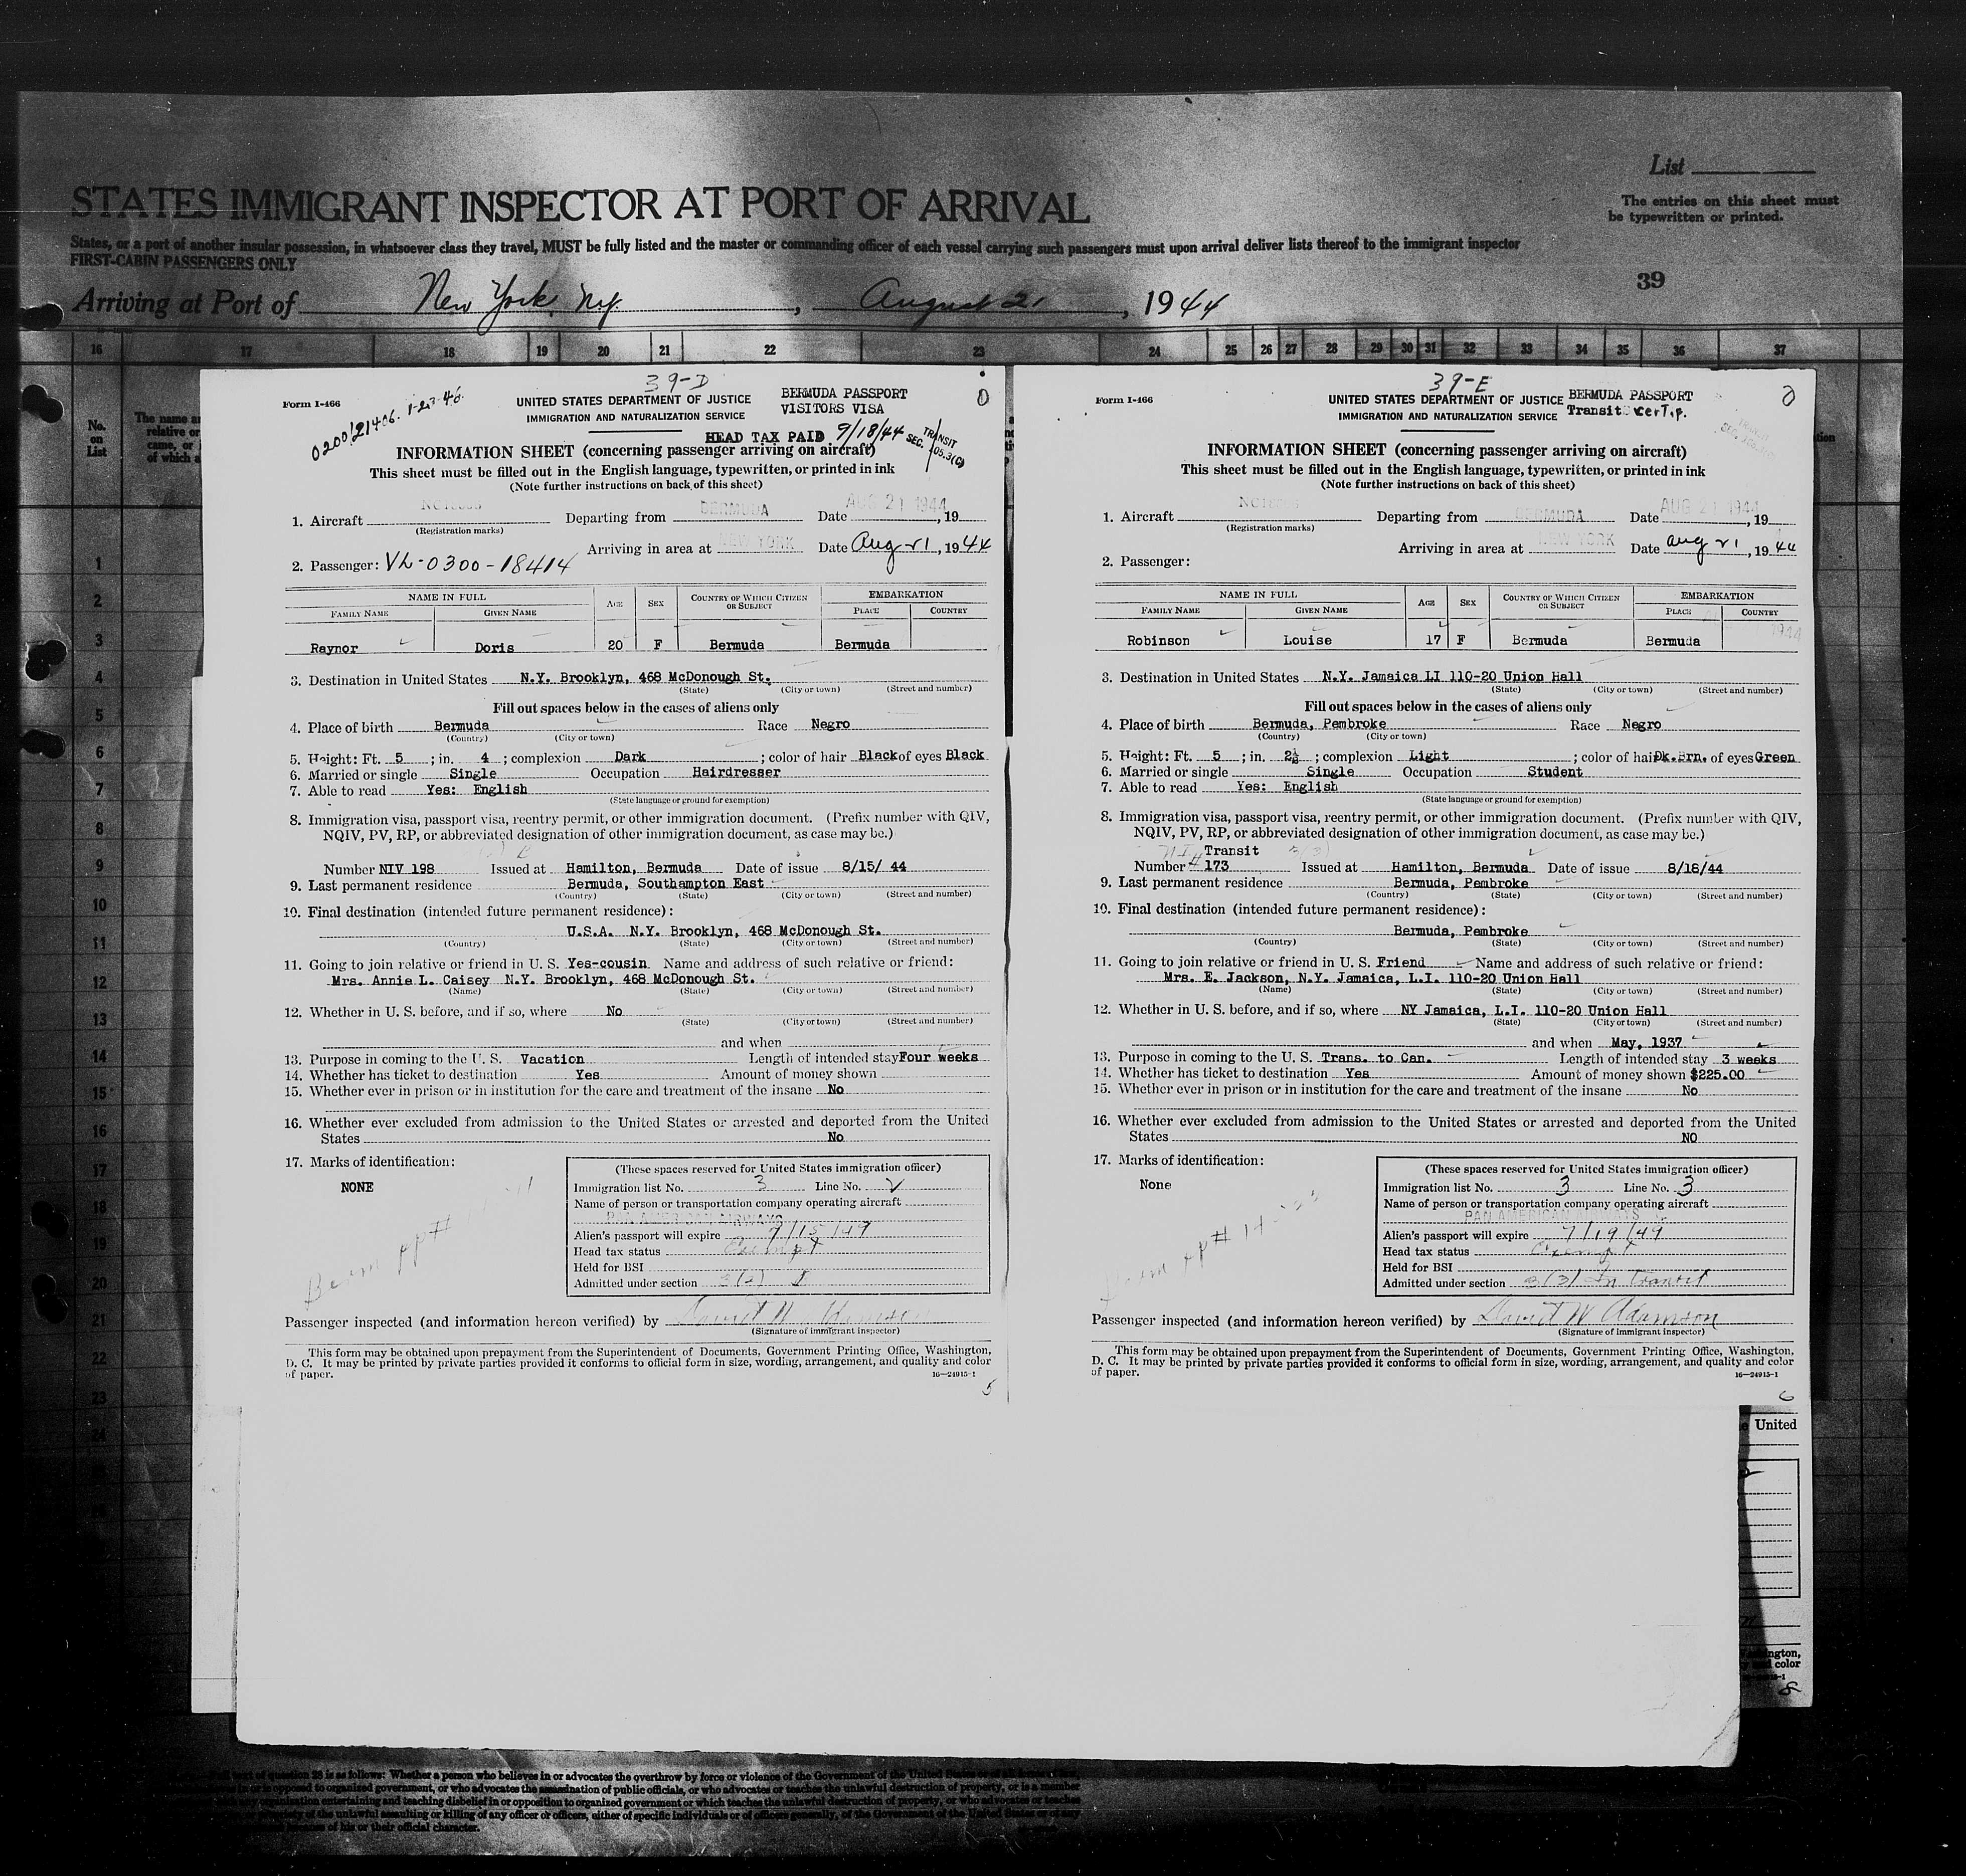 List
STATES IMMIGRANT INSPECTOR AT PORT OF ARRIVAL
The entries on this sheet must
be typewritten or printed.
States, or a port of another insular possession, in whatsoever class they travel, MUST be fully listed and the master or commanding officer of each vessel carrying such passengers must upon arrival deliver lists thereof to the immigrant inspector
FIRST-CABIN PASSENGERS ONLY
39
Arriving at Port of New York, N.Y. , August 21 , 1944
16 17 18 19 20 21 22 23 24 25 26 27 28 29 30 31 32 33 34 35 36 37
No.
on
List
1
2
3
4
5
6
7
8
9
10
11
12
13
14
15
16
17
18
19
20
21
22
23
24
39-D
Form I-466
UNITED STATES DEPARTMENT OF JUSTICE
IMMIGRATION AND NATURALIZATION SERVICE
BERMUDA PASSPORT
VISITORS VISA
0
HEAD TAX PAID 9/18/44
TRANSIT
SEC.
INFORMATION SHEET (concerning passenger arriving on aircraft)
This sheet must be filled out in the English language, typewritten, or printed in ink
(Note further instructions on back of this sheet)
1. Aircraft Departing from BERMUDA Date AUG 21 1944, 19
(Registration marks)
Arriving in area at NEW YORK Date Aug 21, 1944
2. Passenger: VL-0300-18414
NAME IN FULL AGE SEX COUNTRY OF WHICH CITIZEN OR SUBJECT EMBARKATION
FAMILY NAME GIVEN NAME PLACE COUNTRY
Raynor Doris 20 F Bermuda Bermuda
3. Destination in United States N.Y. Brooklyn, 468 McDonough St.
(State) (City or town) (Street and number)
Fill out spaces below in the cases of aliens only
4. Place of birth Bermuda Race Negro
(Country) (City or town)
5. Height: Ft. 5 ; in. 4 ; complexion Dark ; color of hair Black of eyes Black
6. Married or single Single Occupation Hairdresser
7. Able to read Yes: English
(State language or ground for exemption)
8. Immigration visa, passport visa, reentry permit, or other immigration document. (Prefix number with QIV,
NQIV, PV, RP, or abbreviated designation of other immigration document, as case may be.)
Number NIV 198 Issued at Hamilton, Bermuda Date of issue 8/15/ 44
9. Last permanent residence Bermuda, Southampton East
(Country) (State) (City or town) (Street and number)
10. Final destination (intended future permanent residence):
U.S.A. N.Y. Brooklyn, 468 McDonough St.
(Country) (State) (City or town) (Street and number)
11. Going to join relative or friend in U. S. Yes-cousin Name and address of such relative or friend:
Mrs. Annie L. Caisey N.Y. Brooklyn, 468 McDonough St.
(Name) (State) (City or town) (Street and number)
12. Whether in U. S. before, and if so, where No
(State) (City or town) (Street and number)
and when
13. Purpose in coming to the U. S. Vacation Length of intended stay Four weeks
14. Whether has ticket to destination Yes Amount of money shown
15. Whether ever in prison or in institution for the care and treatment of the insane No
16. Whether ever excluded from admission to the United States or arrested and deported from the United
States No
17. Marks of identification:
NONE
(These spaces reserved for United States immigration officer)
Immigration list No. 3 Line No. 2
Name of person or transportation company operating aircraft
PAN AMERICAN AIRWAYS
Alien's passport will expire 7/15/49
Head tax status Exempt
Held for BSI
Admitted under section 3(2)
Passenger inspected (and information hereon verified) by David W Adamson
(Signature of immigrant inspector)
This form may be obtained upon prepayment from the Superintendent of Documents, Government Printing Office, Washington,
D. C. It may be printed by private parties provided it conforms to official form in size, wording, arrangement, and quality and color
of paper.
16—24915-1
5
39-E
Form I-466
UNITED STATES DEPARTMENT OF JUSTICE
IMMIGRATION AND NATURALIZATION SERVICE
BERMUDA PASSPORT
Transit cerTip.
0
INFORMATION SHEET (concerning passenger arriving on aircraft)
This sheet must be filled out in the English language, typewritten, or printed in ink
(Note further instructions on back of this sheet)
1. Aircraft Departing from BERMUDA Date AUG 21 1944, 19
(Registration marks)
Arriving in area at NEW YORK Date Aug 21, 1944
2. Passenger:
NAME IN FULL AGE SEX COUNTRY OF WHICH CITIZEN OR SUBJECT EMBARKATION
FAMILY NAME GIVEN NAME PLACE COUNTRY
Robinson Louise 17 F Bermuda Bermuda
3. Destination in United States N.Y. Jamaica LI 110-20 Union Hall
(State) (City or town) (Street and number)
Fill out spaces below in the cases of aliens only
4. Place of birth Bermuda, Pembroke Race Negro
(Country) (City or town)
5. Height: Ft. 5 ; in. 2½ ; complexion Light ; color of hair Dk.Brn. of eyes Green
6. Married or single Single Occupation Student
7. Able to read Yes: English
(State language or ground for exemption)
8. Immigration visa, passport visa, reentry permit, or other immigration document. (Prefix number with QIV,
NQIV, PV, RP, or abbreviated designation of other immigration document, as case may be.)
Transit 3(3)
Number # 173 Issued at Hamilton, Bermuda Date of issue 8/18/44
9. Last permanent residence Bermuda, Pembroke
(Country) (State) (City or town) (Street and number)
10. Final destination (intended future permanent residence):
Bermuda, Pembroke
(Country) (State) (City or town) (Street and number)
11. Going to join relative or friend in U. S. Friend Name and address of such relative or friend:
Mrs. E. Jackson, N.Y. Jamaica, L.I. 110-20 Union Hall
(Name) (State) (City or town) (Street and number)
12. Whether in U. S. before, and if so, where NY Jamaica, L.I. 110-20 Union Hall
(State) (City or town) (Street and number)
and when May, 1937
13. Purpose in coming to the U. S. Trans. to Can. Length of intended stay 3 weeks
14. Whether has ticket to destination Yes Amount of money shown $225.00
15. Whether ever in prison or in institution for the care and treatment of the insane No
16. Whether ever excluded from admission to the United States or arrested and deported from the United
States NO
17. Marks of identification:
None
(These spaces reserved for United States immigration officer)
Immigration list No. 3 Line No. 3
Name of person or transportation company operating aircraft
PAN AMERICAN AIRWAYS
Alien's passport will expire 7/19/49
Head tax status Exempt
Held for BSI
Admitted under section 3(3) In Transit
Passenger inspected (and information hereon verified) by David W Adamson
(Signature of immigrant inspector)
This form may be obtained upon prepayment from the Superintendent of Documents, Government Printing Office, Washington,
D. C. It may be printed by private parties provided it conforms to official form in size, wording, arrangement, and quality and color
of paper.
16—24915-1
6
United
color
8
question 28 is as follows: Whether a person who believes in or advocates the overthrow by force or violence of the Government of the United
opposed to organized government, or who advocates the assassination of public officials, or who advocates or teaches the unlawful destruction of property, or is a member
organization entertaining and teaching disbelief in or opposition to organized government or which teaches the unlawful destruction of property, or who advocates or teaches
of the unlawful assaulting or killing of any officer or officers, either of specific individuals or of officers generally, of the Government of the United States or of any
of his or their official character.